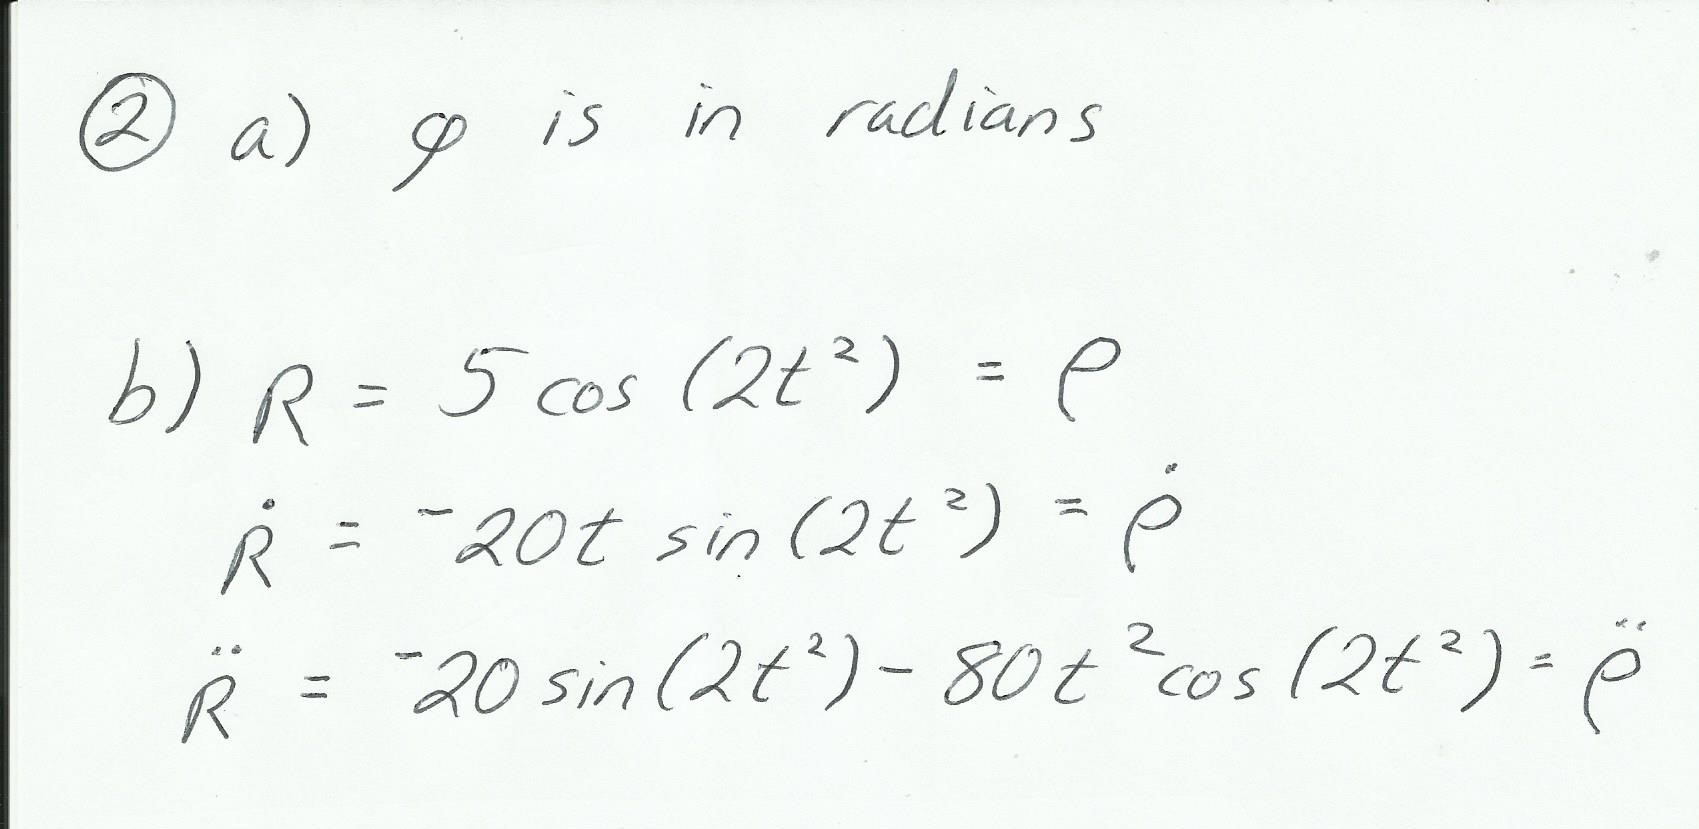 ② a) φ is in radians
b) R = 5 cos (2t²) = ρ
Ṙ = ⁻20t sin (2t²) = ρ̇
R̈ = ⁻20 sin (2t²) - 80t² cos (2t²) = ρ̈